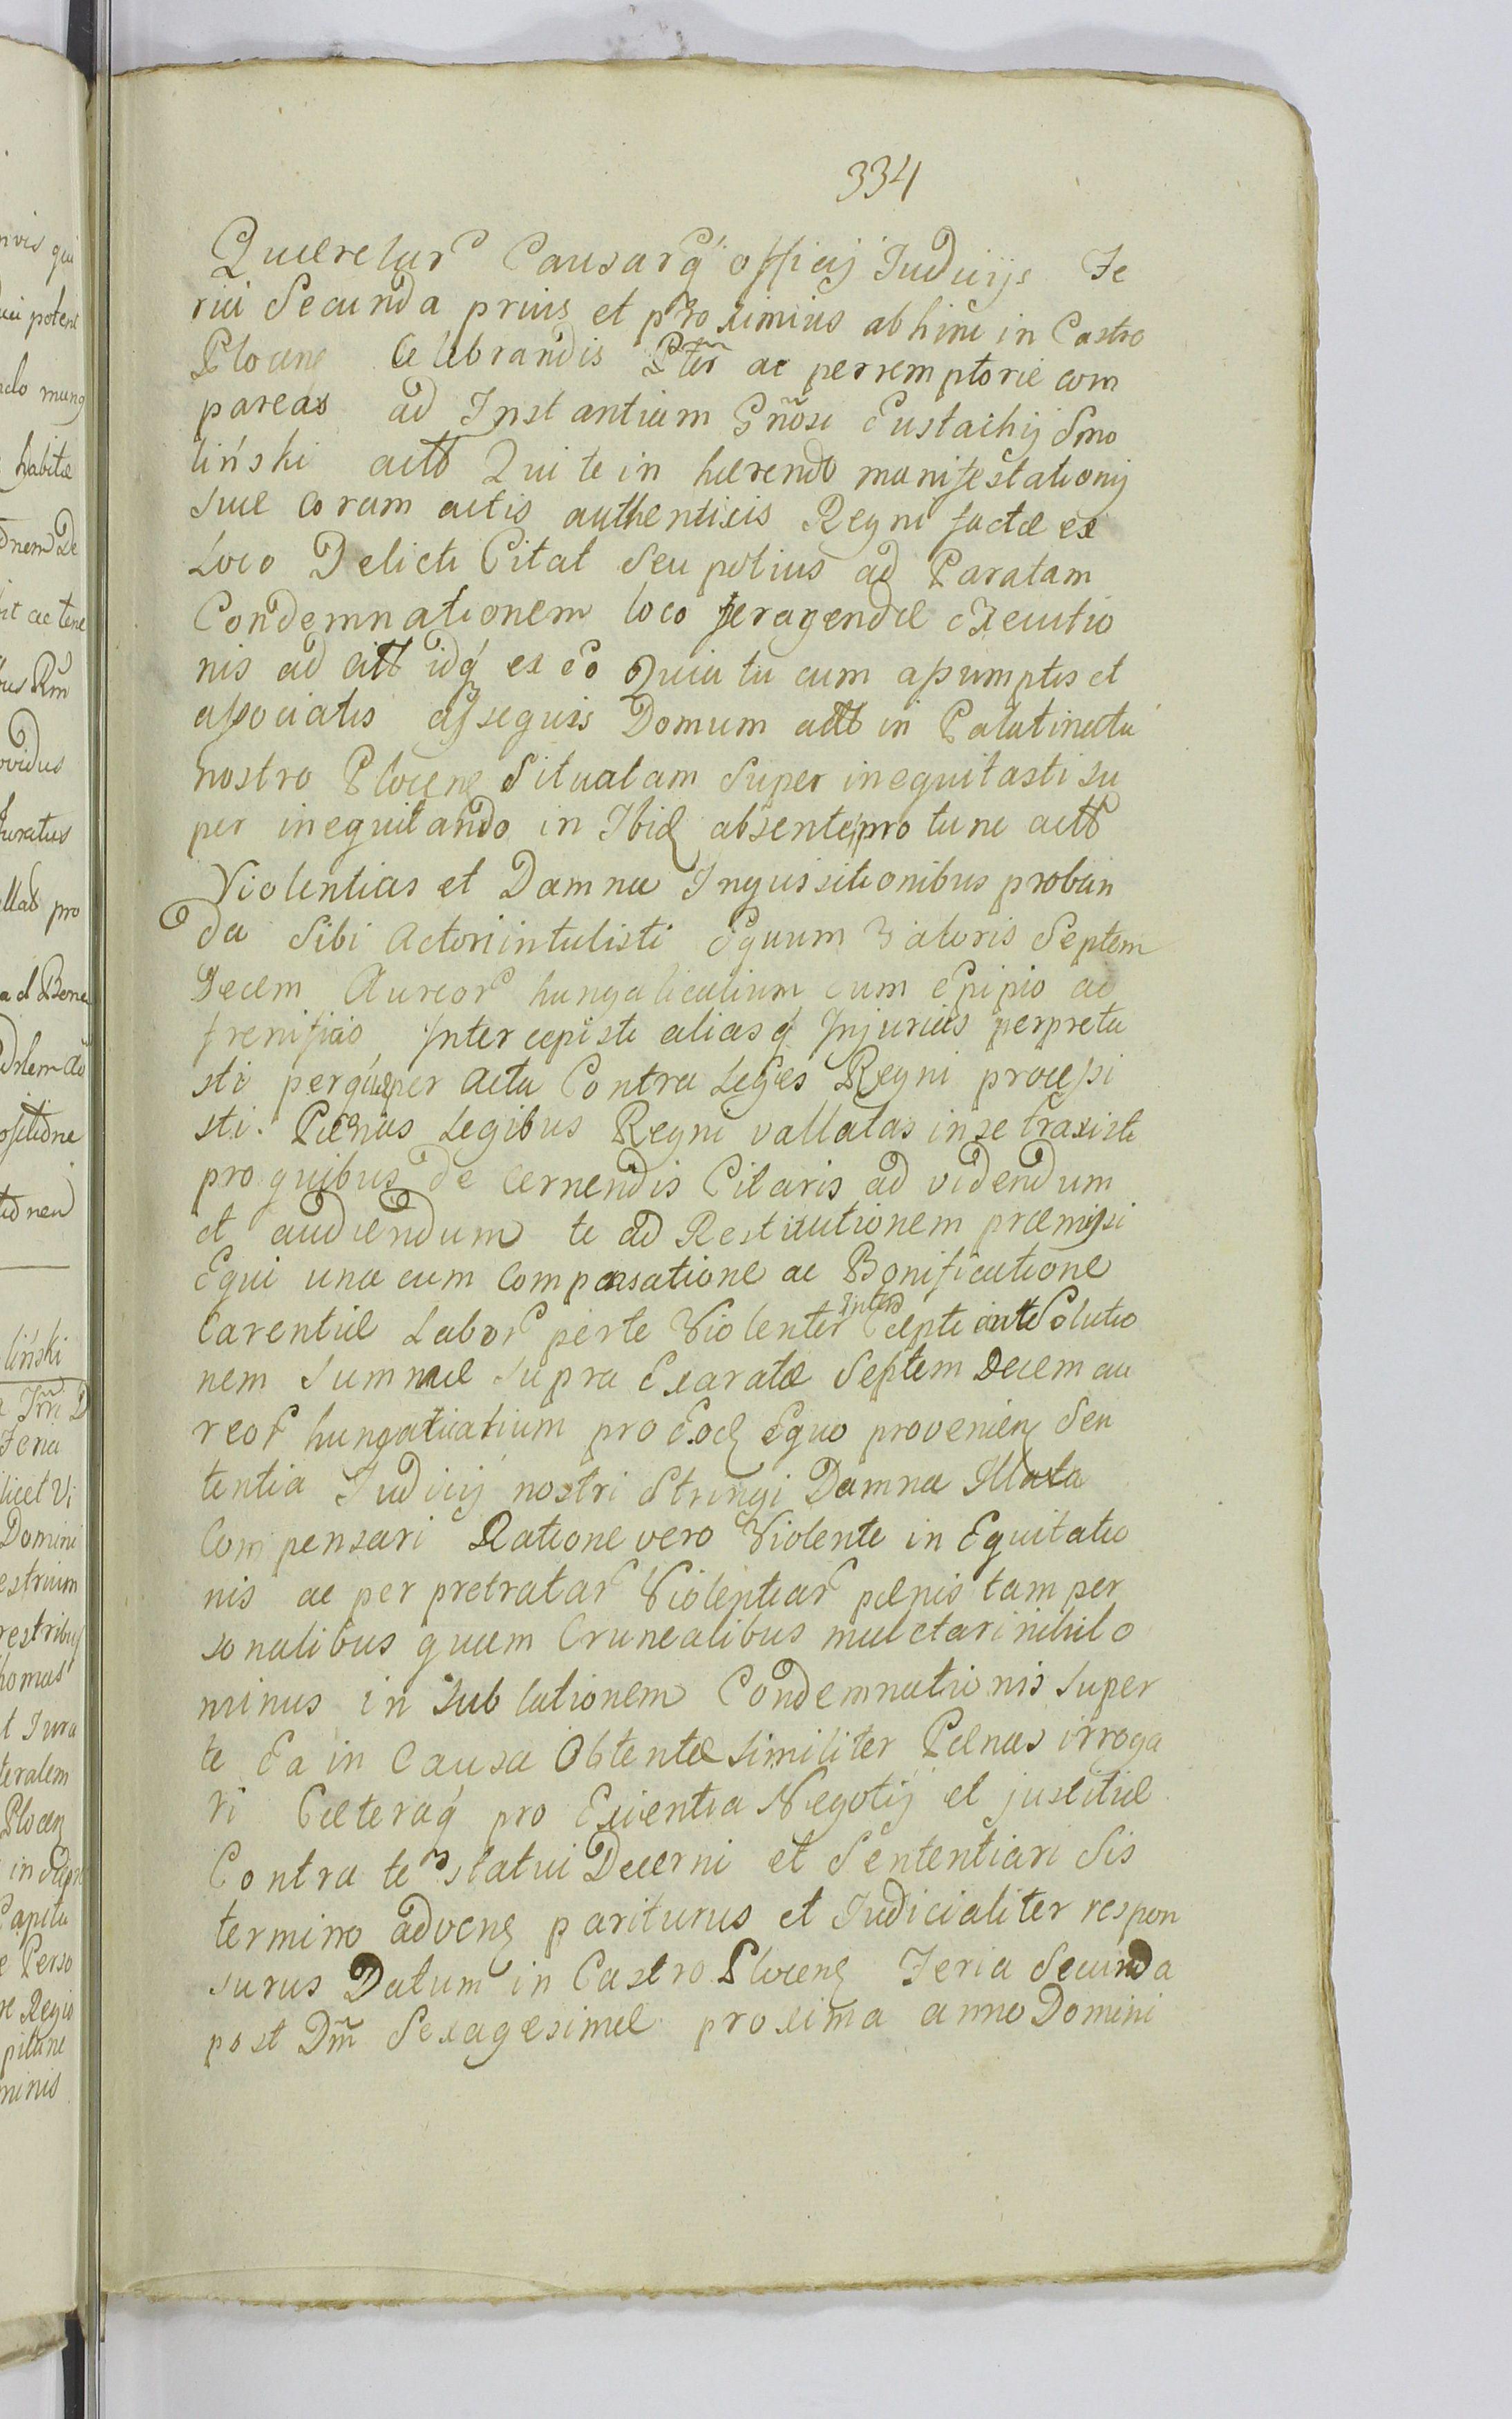 334
Querelar Causarq́ officij Judicijs Fe
ria Secunda prius et proximius abhinc in Castro
Plocenȩ Celebrandis Ptêr ac perremptorie com
pareas ad Instantiam Gñosi Eustachij Smo
liński actt Qui te in hærendo manifestationij
suæ Coram actis authenticis Regni factæ ex
Loco Delicti Citat Seu potius ad Paratam
Condemnationem loco peragendæ executio
nis ad citt idq́ ex eo Quia tu cum assumptis et
associatis assequis Domum actt in Palatinatu
nostro Plocenȩ Situatam Super inequitasti su
per inequitando in Ibidȩ absente pro tunc actt
Violentias et Damna Inquissitionibus proban
da Sibi Actori intulisti Equum Valoris Septem
Decem Aureor hungalicalium cum Epipio ac
frenificio Intercepisti aliasq́ Injurias perpretra
sti perq́ue per acta Contra Leges Regni processi
sti. Pænas Legibus Regni vallatas in se traxisti
pro quibus de cernendis Citaris ad videndum
et audiendum te ad Restitutionem præmissi
Equi una cum Compensatione ac Bonificatione
Carentiæ Labor per te Violenter Inter Cepti aut Solutio
nem Summæ supra Exaratæ Septem Decem au
reor hungaticatium pro Eodȩ Equo provenienȩ Sen
tentia Judicij nostri Stringi Damna Illata
Compensari Ratione vero Violenti in Equitatio
nis ac per pretratar Violentiar pænis tam per
sonalibus quam Crunealibus mulctari nihilo
minus in Sub lationem Condemnationis super
te Ea in Causa Obtentæ similiter Pænas irroga
ri Cæteraq́ pro Exientia Negotij et justitiæ
Contra te statui Decerni et Sententiari Sis
termino advenȩ pariturus et Judicialiter respon
surus Datum in Castro Plocenȩ Feria Secunda
post Dm̃ Sexagesimæ proxima anno Domini